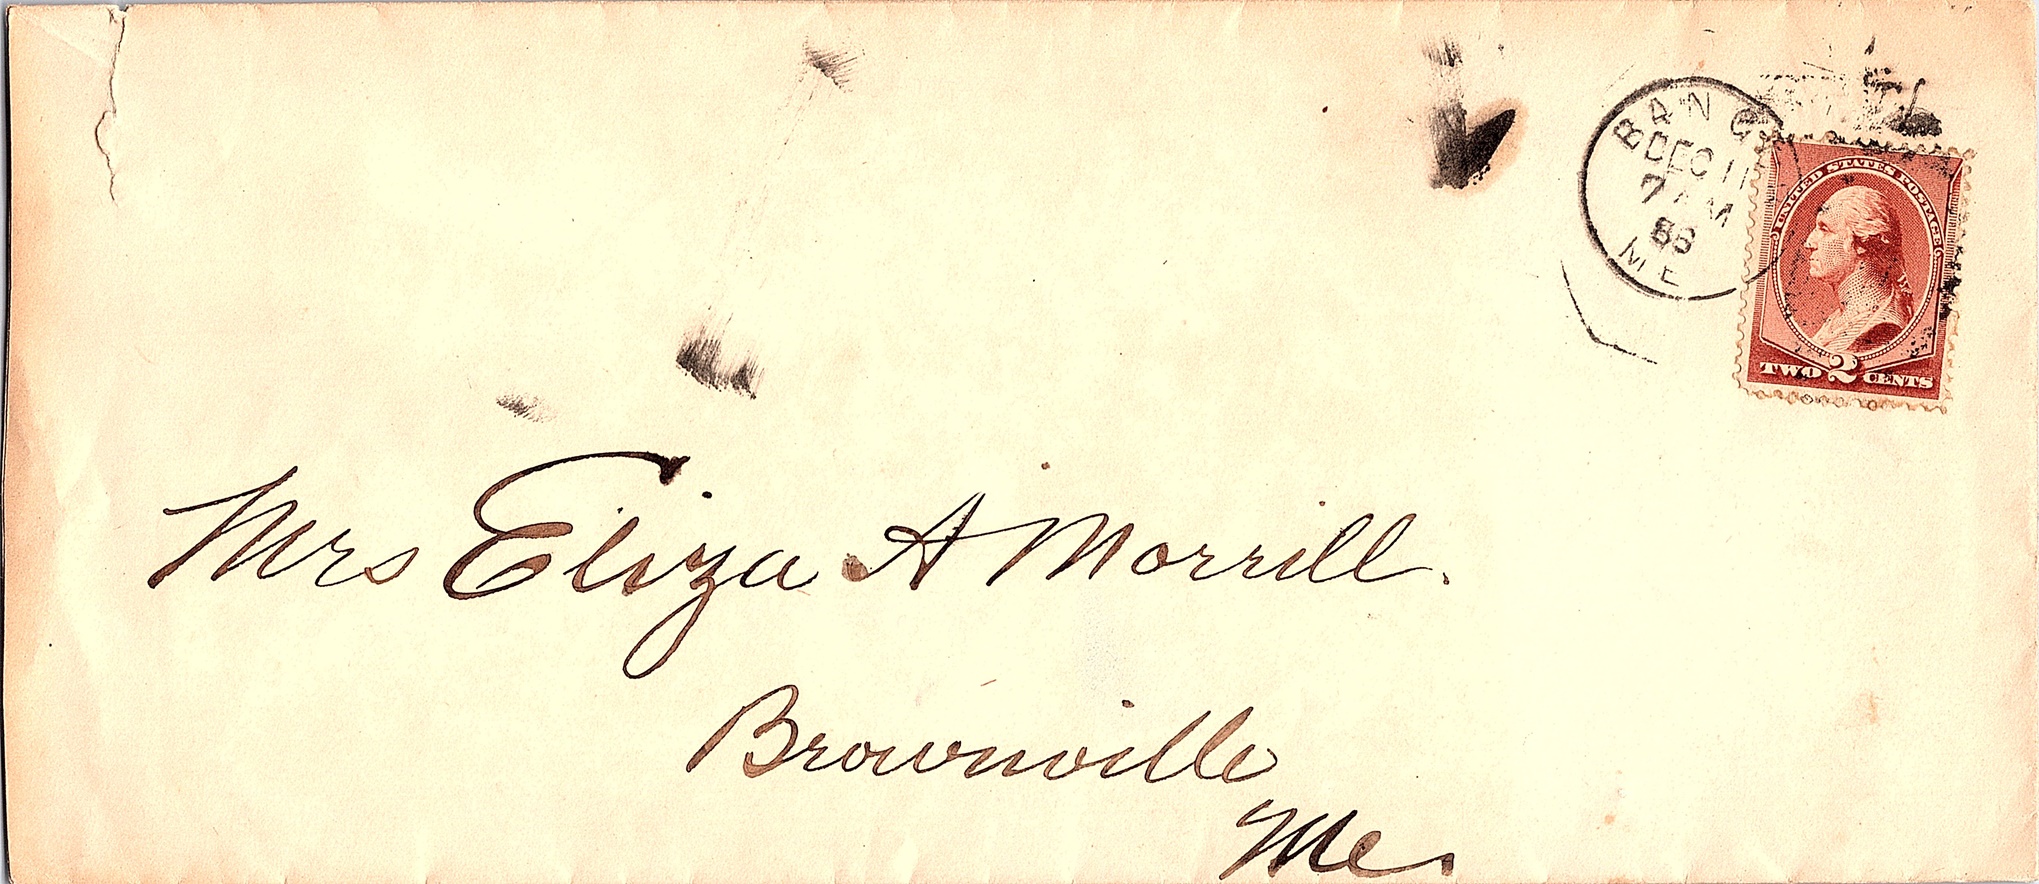 BANG
DEC 11
7 AM
ME
UNITED STATES POSTAGE
TWO 2 CENTS
Mrs Eliza A Morrill.
Brownville
Me.